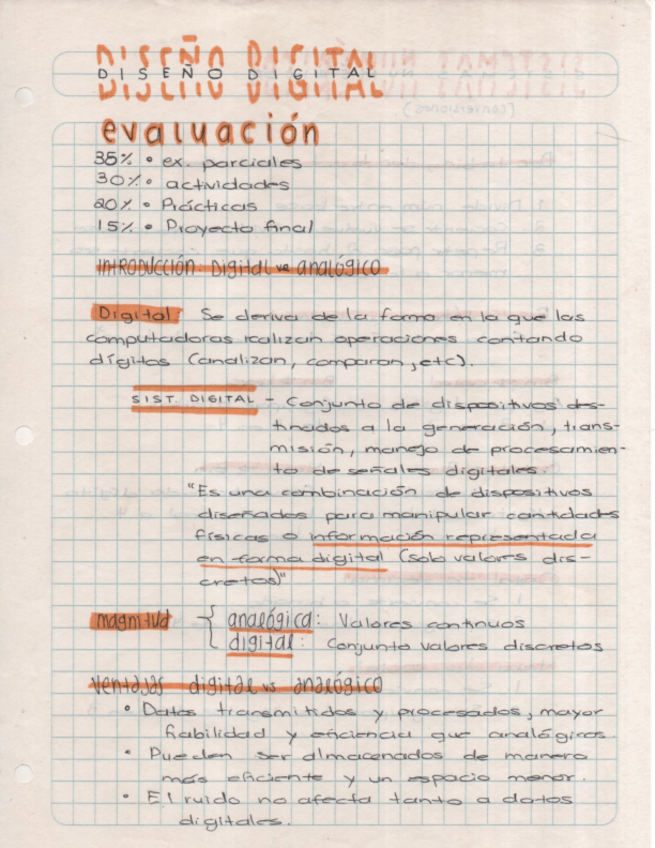 DISEÑO DIGITAL
DISEÑO DIGITAL
evaluación
35% • ex. parciales
30% • actividades
20% • Prácticas
15% • Proyecto final
INTRODUCCIÓN: Digital vs analógico
Digital: Se deriva de la forma en la que las
computadoras realizan operaciones contando
dígitos (analizan, comparan, etc).
SIST. DIGITAL - Conjunto de dispositivos des-
tinados a la generación, trans-
misión, manejo de procesamien-
to de señales digitales.
"Es una combinación de dispositivos
diseñados para manipular cantidades
físicas o información representada
en forma digital (solo valores dis-
cretos)"
magnitud { analógica: Valores continuos
digital: Conjunto valores discretos
ventajas digital vs analógico
• Datos transmitidos y procesados, mayor
fiabilidad y eficiencia que analógicos.
• Pueden ser almacenados de manera
más eficiente y un espacio menor.
• El ruido no afecta tanto a datos
digitales.